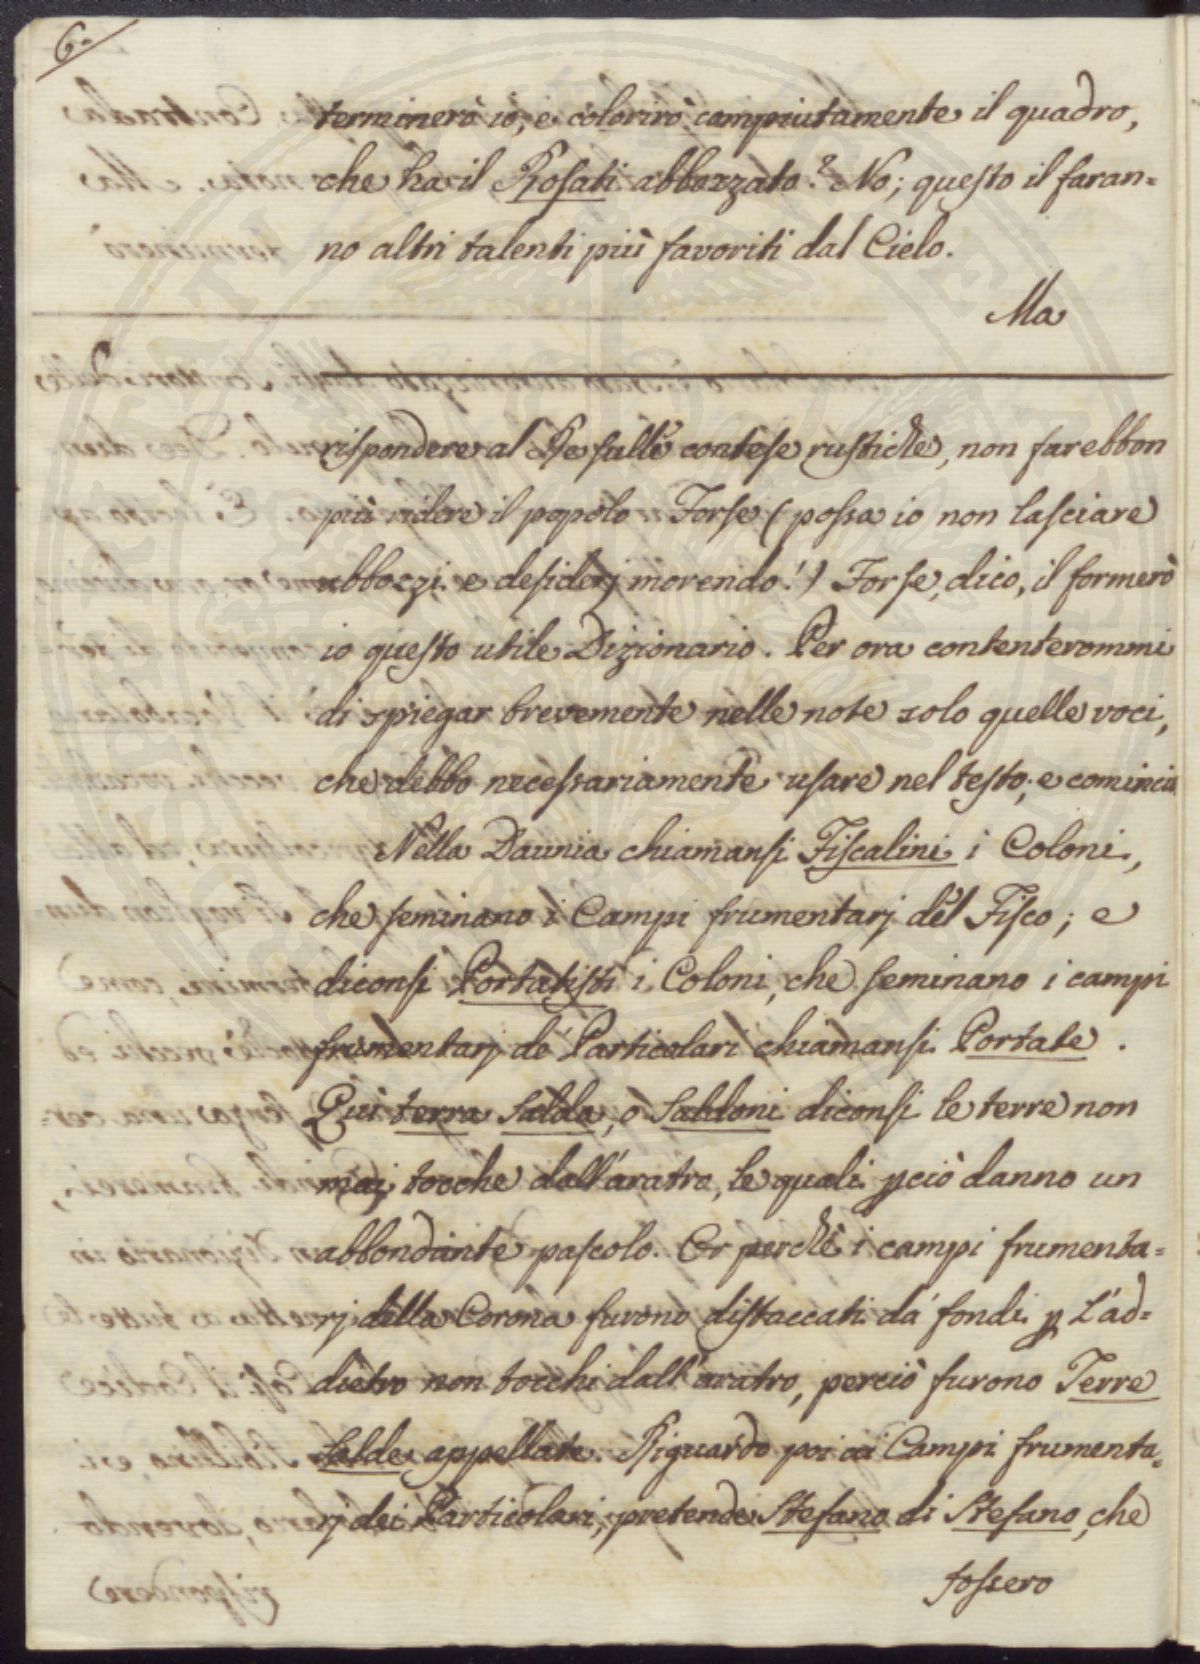 6.
terminerò io, e colorirò compiutamente il quadro,
che ha il Rosati abbozzato? No; questo il faran=
no altri talenti più favoriti dal Cielo.
Ma
rispondere al Re sulle contese rustiche, non farebbon
più ridere il popolo. Forse (possa io non lasciare
abbozzi e desiderj morendo!) Forse, dico, il formerò
io questo utile Dizionario. Per ora contenterommi
di spiegar brevemente nelle note solo quelle voci,
che debbo necessariamente usare nel testo; e comincio
Nella Daunia chiamansi Fiscalini i Coloni,
che seminano i Campi frumentarj del Fisco; e
diconsi Portatisti i Coloni, che seminano i campi
frumentarj de' Particolari chiamansi Portate.
Qui terra salda, o Saldoni diconsi le terre non
mai tocche dall'aratro, le quali pciò danno un
abbondante pascolo. Or perchè i campi frumenta=
rj della Corona furono distaccati da' fondi p l'ad=
dietro non tocchi dall'aratro, perciò furono Terre
Salde appellate. Riguardo poi ai Campi frumenta=
rj dei Particolari, pretende Stefano di Stefano, che
fossero